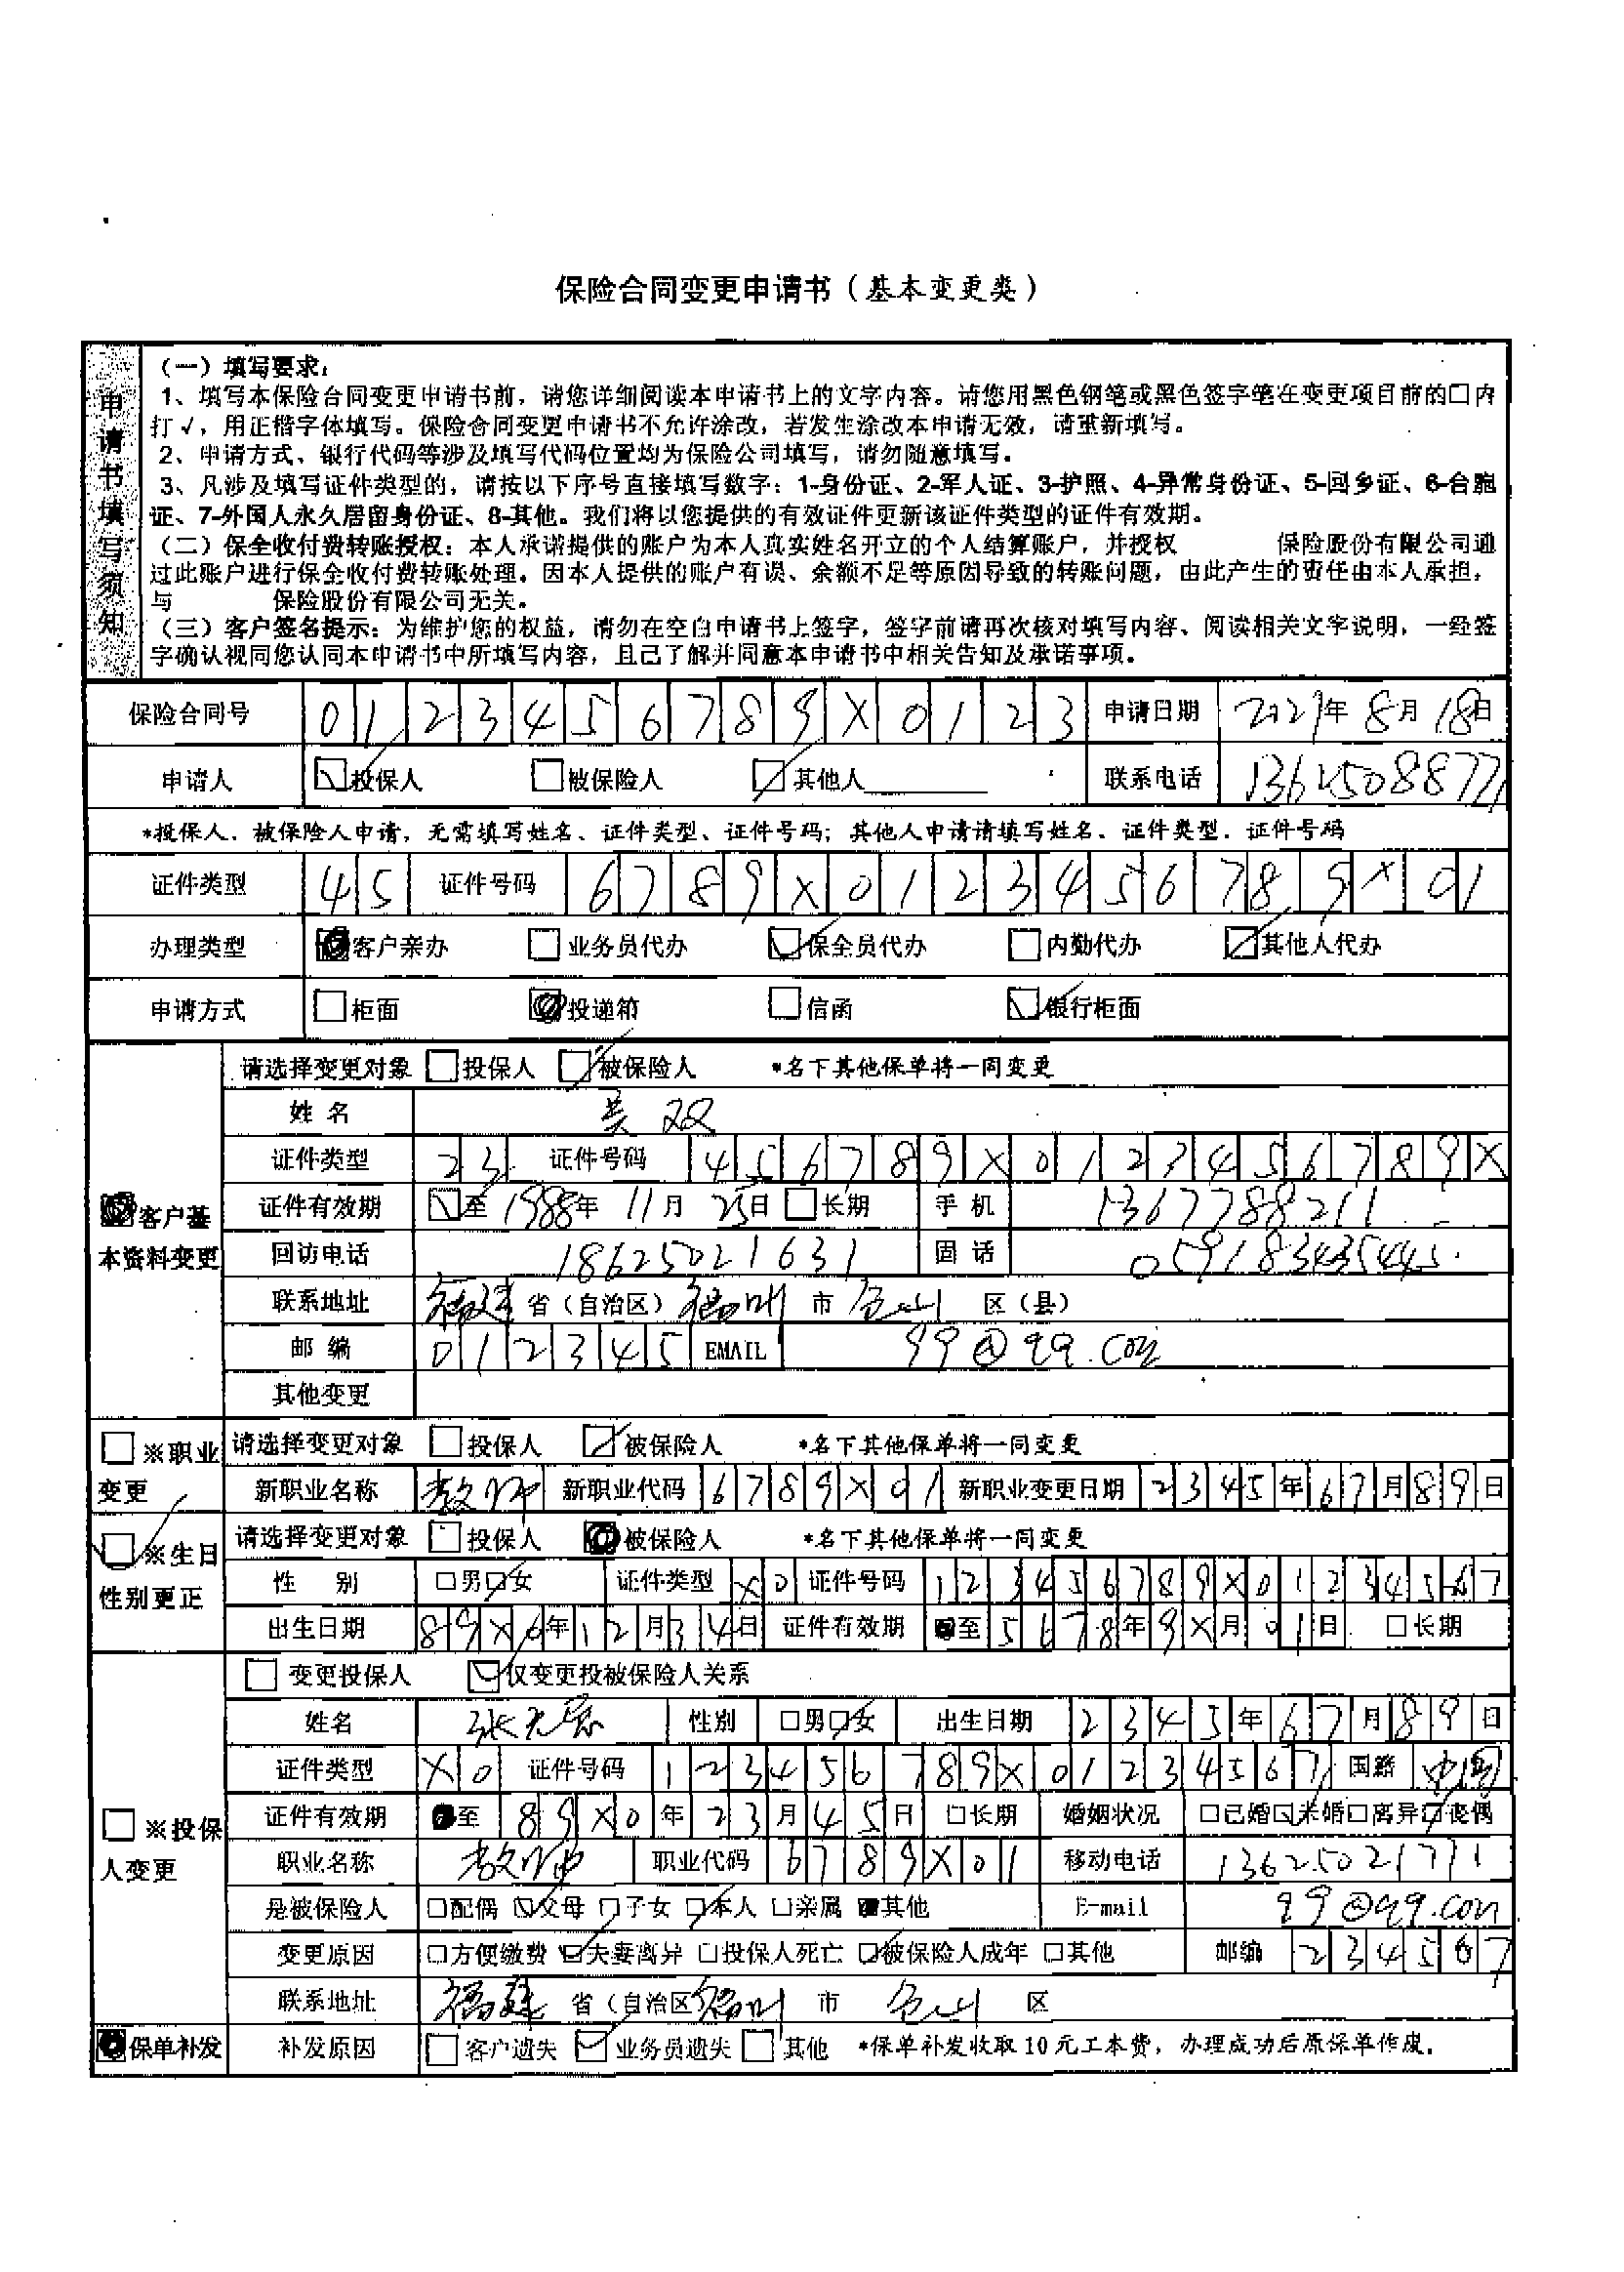 保险合同变更申请书（基本变更类）
申请书填写须知
（一）填写要求：
1、填写本保险合同变更申请书前，请您详细阅读本申请书上的文字内容。请您用黑色钢笔或黑色签字笔在变更项目前的□内
打√，用正楷字体填写。保险合同变更申请书不允许涂改，若发生涂改本申请无效，请重新填写。
2、申请方式、银行代码等涉及填写代码位置均为保险公司填写，请勿随意填写。
3、凡涉及填写证件类型的，请按以下序号直接填写数字：1-身份证、2-军人证、3-护照、4-异常身份证、5-回乡证、6-台胞
证、7-外国人永久居留身份证、8-其他。我们将以您提供的有效证件更新该证件类型的证件有效期。
（二）保全收付费转账授权：本人承诺提供的账户为本人真实姓名开立的个人结算账户，并授权 保险股份有限公司通
过此账户进行保全收付费转账处理。因本人提供的账户有误、余额不足等原因导致的转账问题，由此产生的责任由本人承担，
与 保险股份有限公司无关。
（三）客户签名提示：为维护您的权益，请勿在空白申请书上签字，签字前请再次核对填写内容、阅读相关文字说明，一经签
字确认视同您认同本申请书中所填写内容，且已了解并同意本申请书中相关告知及承诺事项。
保险合同号 0 1 2 3 4 5 6 7 8 9 X 0 1 2 3 申请日期 2021年 8月 18日
申请人 投保人 被保险人 其他人 联系电话 13625088771
*投保人、被保险人申请，无需填写姓名、证件类型、证件号码；其他人申请请填写姓名、证件类型、证件号码
证件类型 4 5 证件号码 6 7 8 9 X 0 1 2 3 4 5 6 7 8 9 X 0 1
办理类型 客户亲办 业务员代办 保全员代办 内勤代办 其他人代办
申请方式 柜面 投递箱 信函 银行柜面
客户基本资料变更
请选择变更对象 投保人 被保险人 *名下其他保单将一同变更
姓 名 吴双
证件类型 2 3 证件号码 4 5 6 7 8 9 X 0 1 2 3 4 5 6 7 8 9 X
证件有效期 至 1988年 11月 25日 长期 手 机 1367788211
回访电话 18625021631 固 话 059183435445
联系地址 福建 省（自治区） 福州 市 仓山 区（县）
邮 编 0 1 2 3 4 5 EMAIL 99@qq.com
其他变更
※职业变更
请选择变更对象 投保人 被保险人 *名下其他保单将一同变更
新职业名称 教师 新职业代码 6 7 8 9 X 0 1 新职业变更日期 2 3 4 5 年 6 7 月 8 9 日
※生日性别更正
请选择变更对象 投保人 被保险人 *名下其他保单将一同变更
性 别 □男□女 证件类型 X 0 证件号码 1 2 3 4 5 6 7 8 9 X 0 1 2 3 4 5 6 7
出生日期 8 9 X 0 年 1 2 月 3 4 日 证件有效期 至 5 6 7 8 年 9 X 月 0 1 日 □长期
※投保人变更
变更投保人 仅变更投被保险人关系
姓名 张无忌 性别 □男□女 出生日期 2 3 4 5 年 6 7 月 8 9 日
证件类型 X 0 证件号码 1 2 3 4 5 6 7 8 9 X 0 1 2 3 4 5 6 7 国籍 中国
证件有效期 至 8 9 X 0 年 2 3 月 4 5 日 □长期 婚姻状况 □已婚□未婚□离异□丧偶
职业名称 教师 职业代码 6 7 8 9 X 0 1 移动电话 13625021771
是被保险人 □配偶 □父母 □子女 □本人 □亲属 □其他 E-mail 99@qq.com
变更原因 □方便缴费 □夫妻离异 □投保人死亡 □被保险人成年 □其他 邮编 2 3 4 5 6 7
联系地址 福建 省（自治区） 福州 市 仓山 区
保单补发 补发原因 客户遗失 业务员遗失 其他 *保单补发收取10元工本费，办理成功后原保单作废。